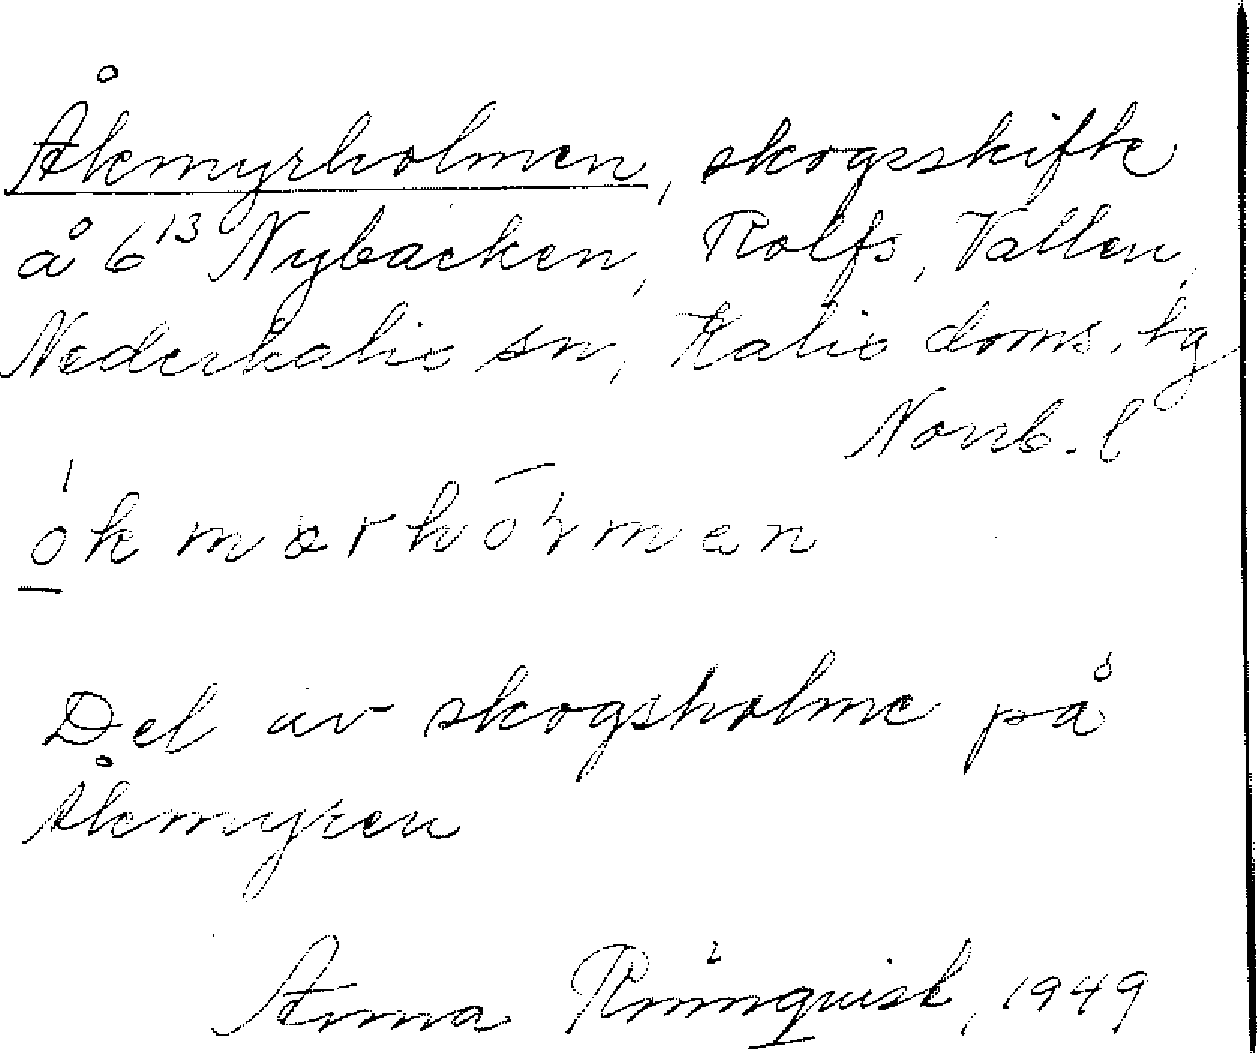 Åkmyrholmen, skogsskifte
å 6¹³ Nybäcken, Rolfs, Vallen,
Nederkalix sn, Kalix doms. tg
Norrb. l
ók mərhṑrmən
Del av skogsholme på
Åkmyren
Anna Rönnquist, 1949